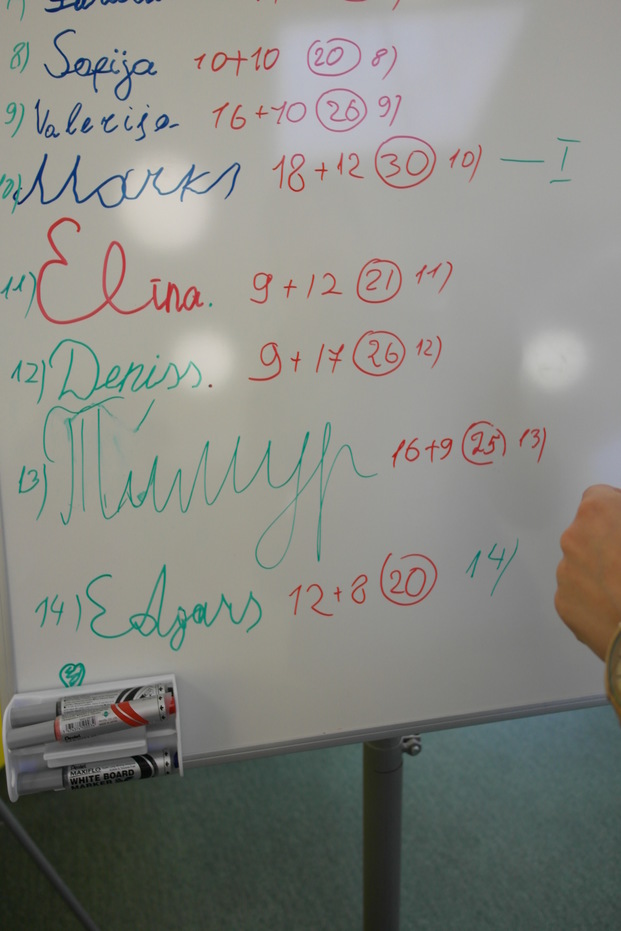 8) Sofija 10+10 20 8)
9) Valerija 16+10 26 9)
10) Marks 18+12 30 10) — I
11) Elīna. 9+12 21 11)
12) Deniss. 9+17 26 12)
13) Тимур 16+9 25 13)
14) Edgars 12+8 20 14)
Pentel
MAXIFLO
WHITE BOARD
MARKER